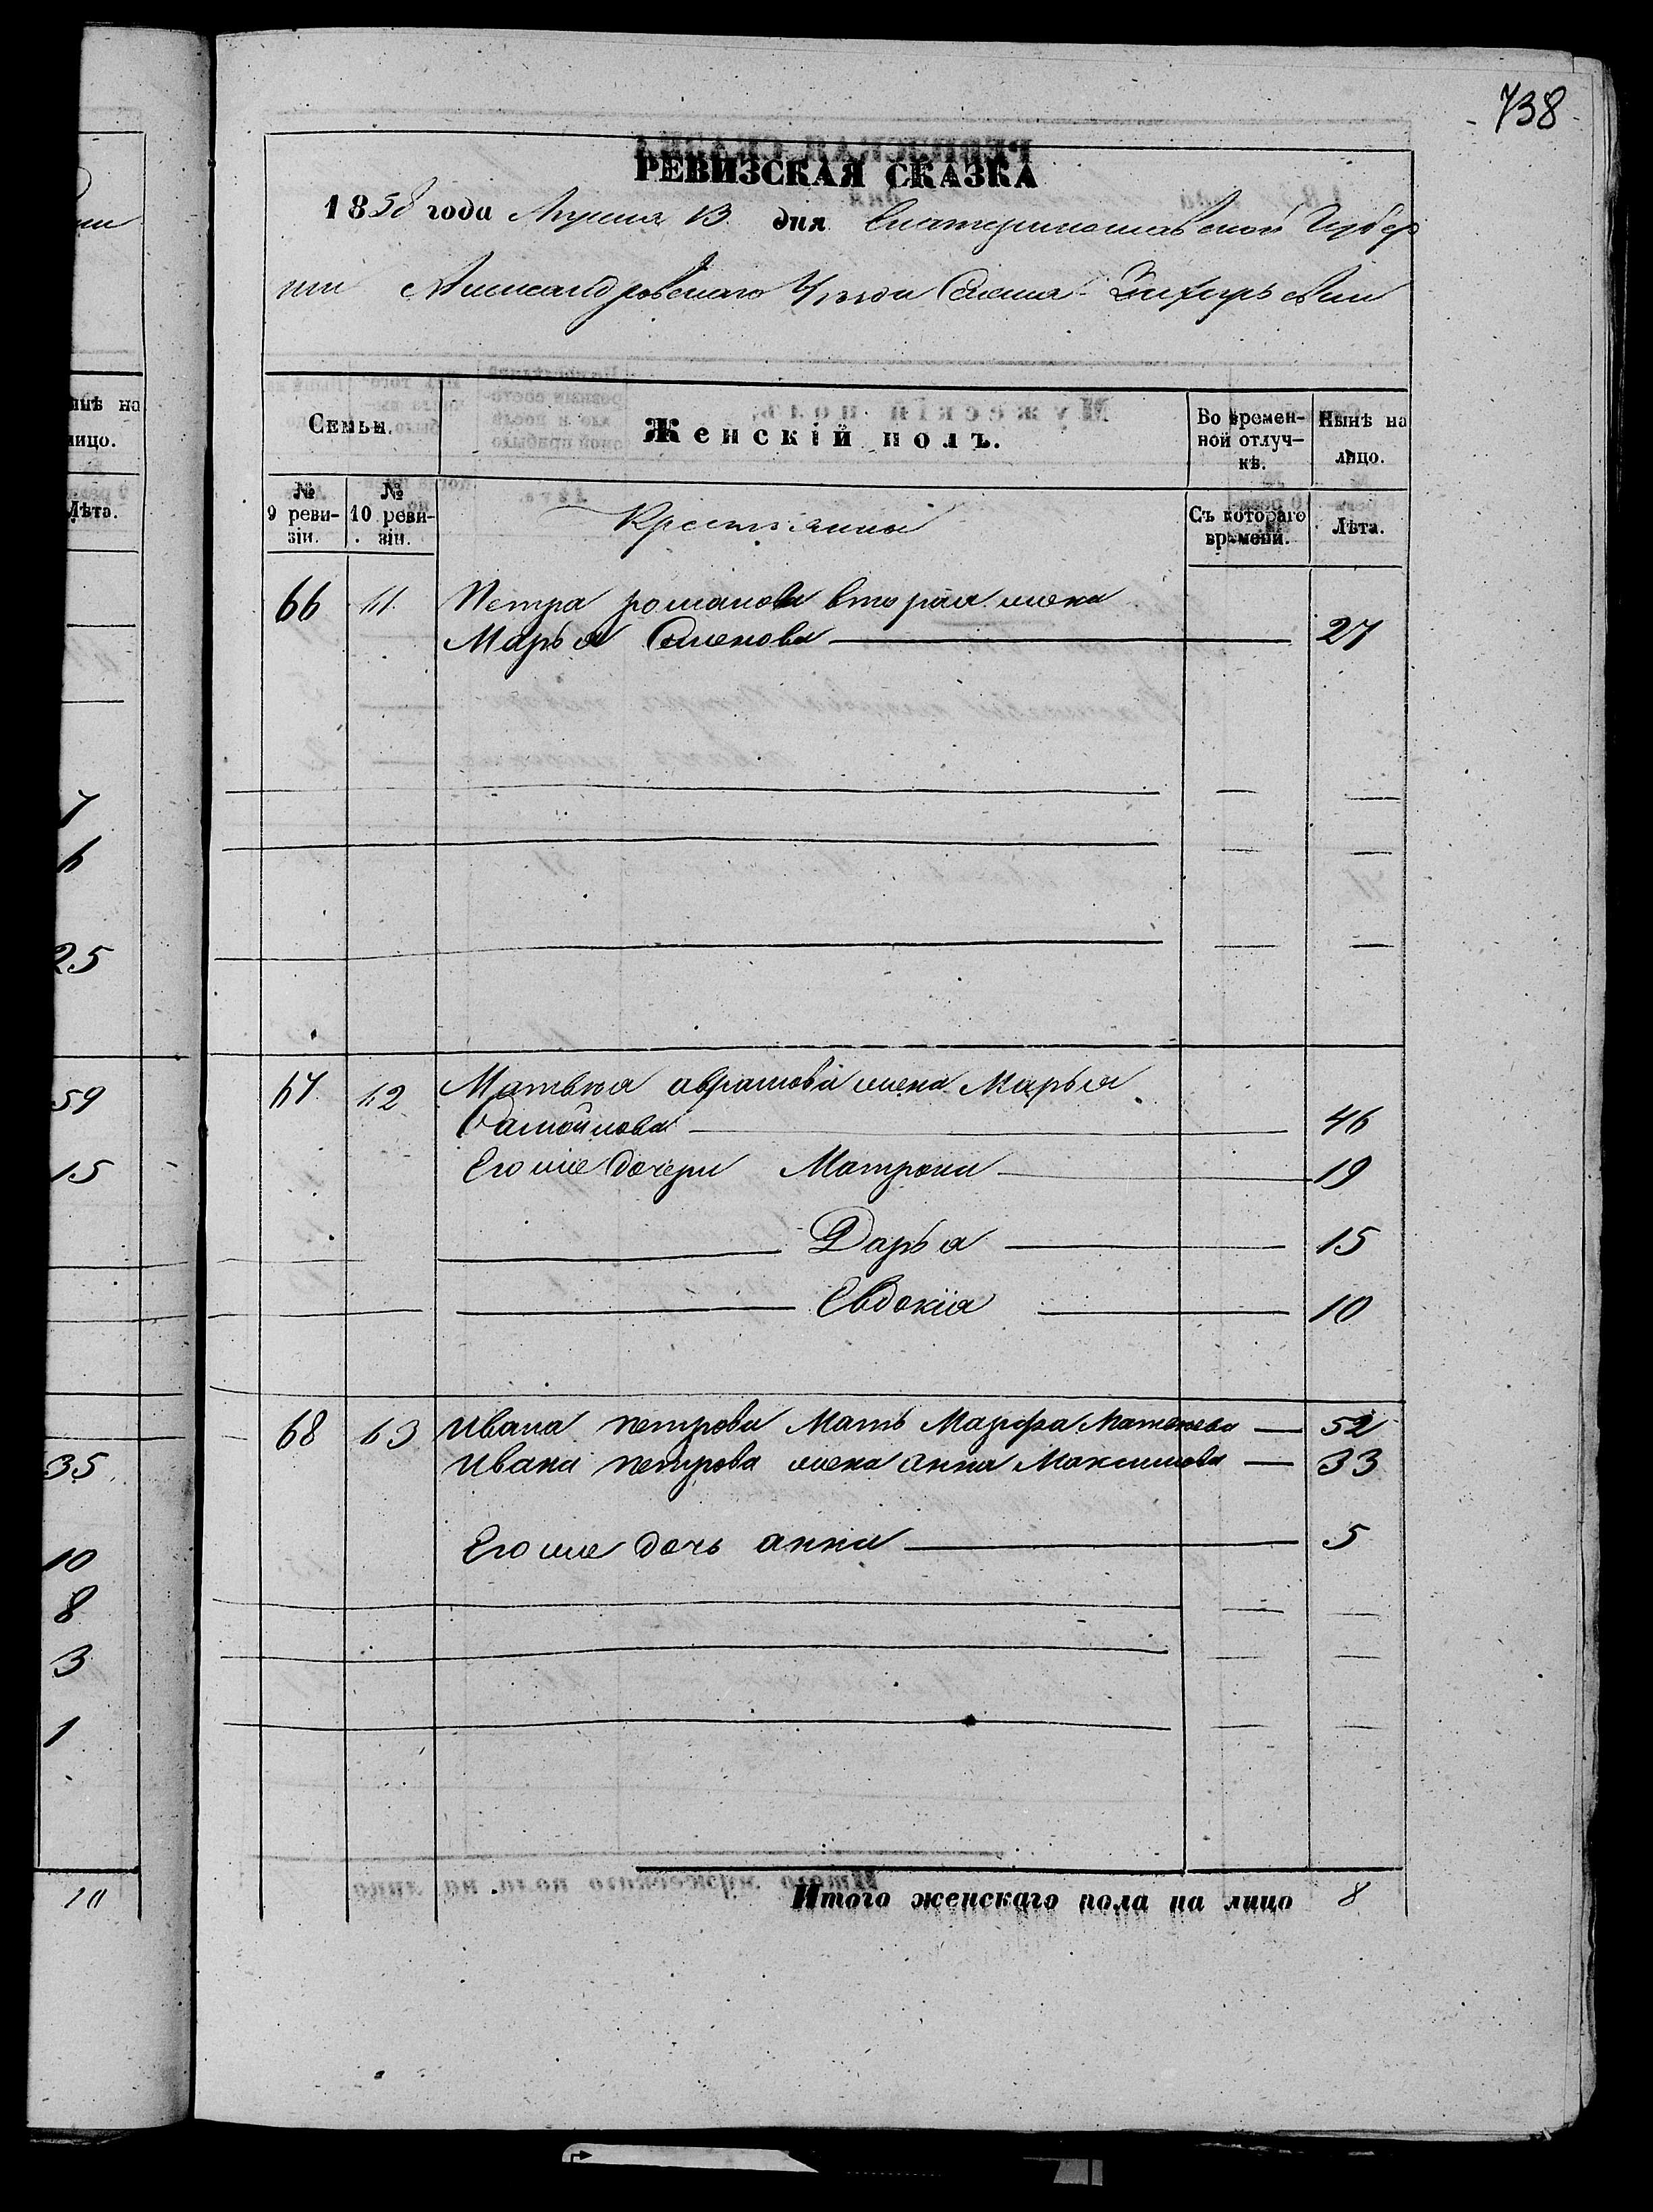 738
РЕВИЗСКАЯ СКАЗКА
1858 года Апреля 13 дня Екатеринославской Губер
нии Александровскаго Уѣзда Села
Семьи.
Женскій полъ.
Во времен-
ной отлуч-
кѣ.
Нынѣ на
лицо.
№
9 реви-
зіи.
№
10 реви-
зіи.
Крестьянин
Съ котораго
времени.
Лѣта.
66 61 Петра романова вторая жена
Марья Семенова 27
67 62 Матвея аврамова жена Марья
Самойлова 46
Его же дочери Матрона 19
Дарья 15
Евдокія 10
68 63 Ивана петрова Мать Марфа Матвеева 52
Ивана петрова жена анна Максимова 33
Его же дочь анна 5
Итого женскаго пола на лицо 8